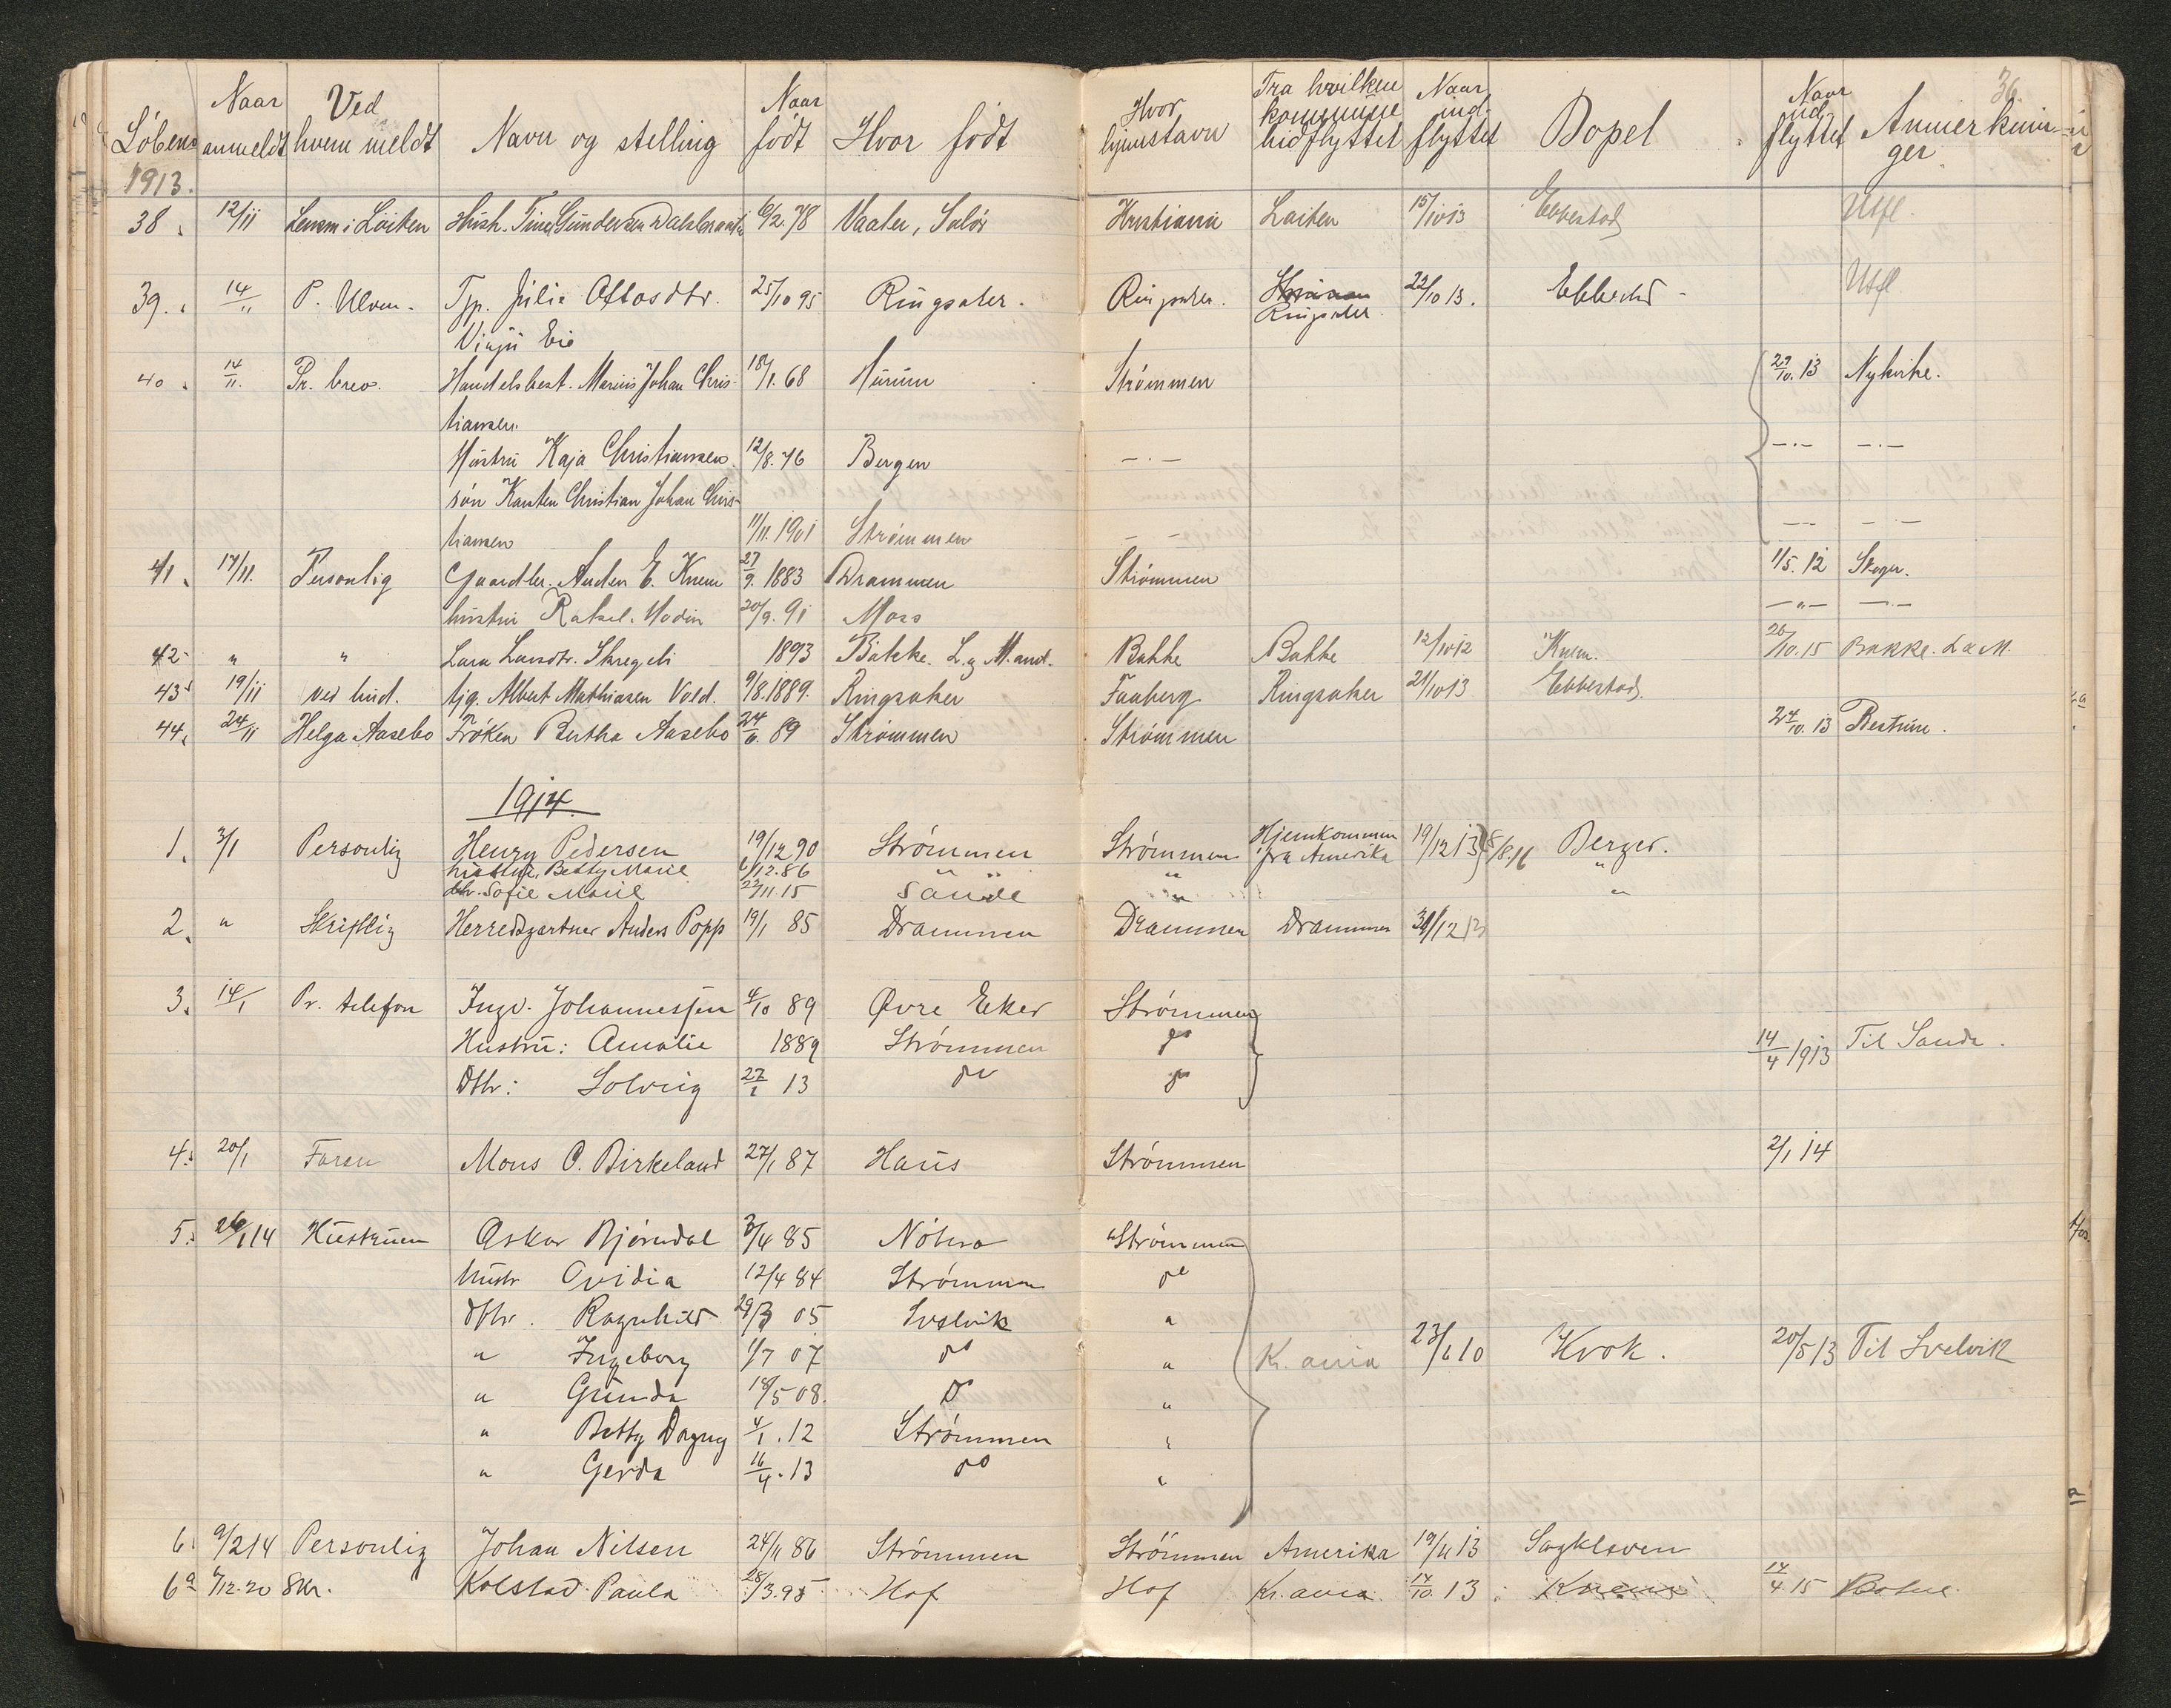 36.
Löbene Naar anmeldt Ved hvem meldt Navn og stelling Naar födt Hvor födt Hvor hjemstavn Fra hvilken kommune hidflyttet Naar ind-flyttet Bopel Naar ud flyttet Anmerkninger
1913.
38. 12/11 Lensm i Löiten Hush. Tine Gundersen 6/2.78 Vaaler, Solör Kristiania Loiten 15/10 13 Ebbestad Utfl.
39. 14/11 P. Ulven. Tjp. Julie Ottosdtr. 25/10 95 Ringsaker. Ringsaker. 22/10 13. Ebbestad Utfl
Eie Ringsaker
40. 14/11. Pr. brev. Handelsbest. Marius Johan Chris- 18/1.68 Hurum Strømmen 29/10.13 Nykirke.
tiansen.
Hustru Kaja Christiansen 12/8.76 Bergen —"— —"— —"—
sön Karsten Christian Johan Chris-
tiansen 11/11.1901 Strömmen — — — — — —
41. 14/11. Personlig Gaardbr. Anders E. Knem 27/9.1883 Drammen Strömmen 1/5.12 Skoger.
hustru Rakel. Modin 20/9.91 Moss —"— —"—
42 " " Lara Larsdtr. Skregeli 1893 Bakke. L. og M. and. Bakke Bakke 12/10 12 Knem. 26/10.15 Bakke. L & M.
43 19/11 ved bud. tjg. Albert Mathiasen Vold. 9/8.1889. Ringsaker Faaberg Ringsaker 21/10 13 Ebbestad.
44. 24/11 Helga Aasebo Fröken Bertha Aasebo 24/6.89 Strömmen Strömmen 24/10.13
1914.
1. 3/1 Personlig Henry Pedersen 19/12 90 Strömmen Strömmen Hjemkommen fra Amerika 19/12 13 8/8.16 Berger.
hustru, Betty Marie 6/12.86 " " "
dtr. Sofie Marie 22/11.15 Sande " "
2. " Skriftlig Herredsgartner Anders Popp 19/1 85 Drammen Drammen Drammen 31/12 13
3. 14/1 Pr. telefon Ingv. Johannessen 4/10 89 Øvre Eker Strömmen
Hustru: Amalie 1889 Strömmen do 14/4 1913 Til Sande.
Dtr: Solveig 27/1 13 do do
4. 20/1 Faren Mons O. Birkeland 27/1 87 Haus Strömmen 2/1 14
5. 26/1 14 Hustruen Oskar Bjørndal 3/4 85 Nöterö Strömmen
Hustr Ovidia 12/4 84 Strömmen do
dtr. Ragnhild 29/3 05 Svelvik "
" Ingeborg 1/7 07 do " Kr.ania 23/6 10 Krok. 20/5 13 Til Svelvik
" Gunda 18/5 08. do "
" Betty Dagny 4/1.12 Strömmen "
" Gerda 16/4.13 do "
6. 9/2 14 Personlig Johan Nilsen 24/11 86 Strömmen Strömmen Amerika 19/11 13 Sagkloven
6a 6/12.20 Skr. Kolstad Paula 28/3.95 Hof Hof Kr.ania 14/10.13 Knem 14/4.15 Botne